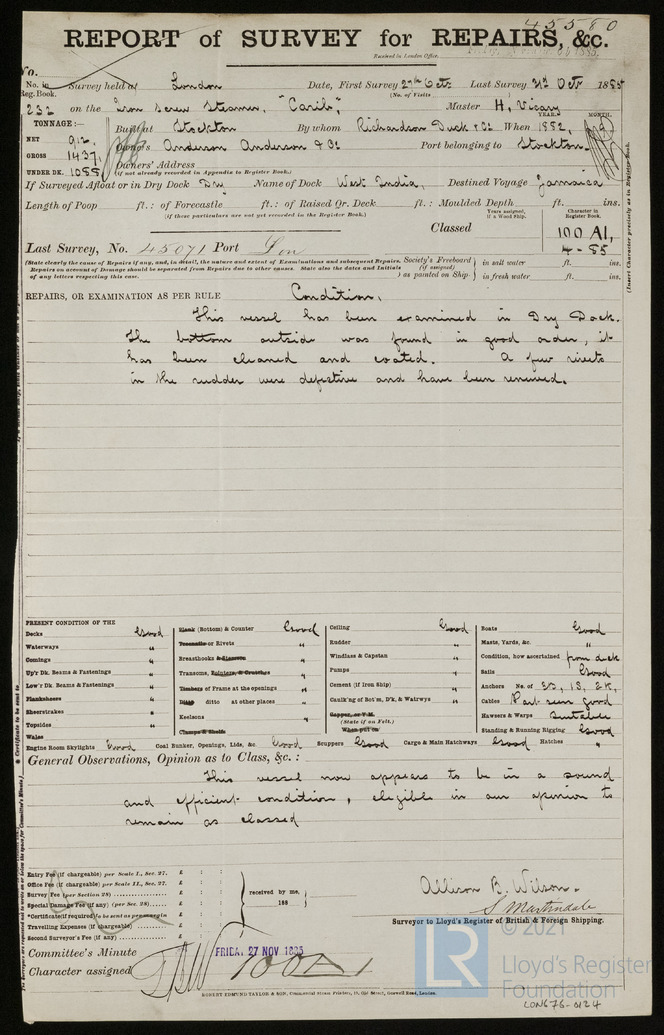 45580
REPORT of SURVEY for REPAIRS, &c.
Received in London Office,
No.
No. in Reg. Book. Survey held at London Date, First Survey 27th Oct. Last Survey 31st Oct 1885
(No. of Visits )
232 on the Iron Screw Steamer, "Carib," Master H. Vicary
TONNAGE:— YEAR. MONTH.
NET 912 Built at Stockton By whom Richardson Duck & Co When 1882,
GROSS 1437 Owners Anderson Anderson & Co Port belonging to Stockton.
UNDER DK. 1055 Owners' Address
(if not already recorded in Appendix to Register Book.)
If Surveyed Afloat or in Dry Dock Dry Name of Dock West India, Destined Voyage Jamaica
Length of Poop ft.: of Forecastle ft.: of Raised Qr. Deck ft.: Moulded Depth ft. ins.
(If these particulars are not yet recorded in the Register Book.)
Years assigned, if a Wood Ship. Character in Register Book.
Classed 100 A1,
4-85
Last Survey, No. 45071 Port Lon
(State clearly the cause of Repairs if any, and, in detail, the nature and extent of Examinations and subsequent Repairs. Society's Freeboard in salt water ft. ins.
Repairs on account of Damage should be separated from Repairs due to other causes. State also the dates and Initials (if assigned)
of any letters respecting this case.) as painted on Ship in fresh water ft. ins.
(Insert Character precisely as in Register Book.
REPAIRS, OR EXAMINATION AS PER RULE Condition.
This vessel has been examined in Dry Dock.
The bottom outside was found in good order, it
has been cleaned and coated. A few rivets
in the rudder were defective and have been renewed.
PRESENT CONDITION OF THE
Decks Good
Waterways "
Comings "
Up'r Dk. Beams & Fastenings "
Low'r Dk. Beams & Fastenings "
Planksheers "
Sheerstrakes "
Topsides "
Wales
Plank (Bottom) & Counter Good
Treenails or Rivets "
Breasthooks & Sleepers "
Transoms, Pointers, & Crutches "
Timbers of Frame at the openings "
Ditto ditto at other places "
Keelsons "
Clamps & Shelfs
Ceiling Good
Rudder "
Windlass & Capstan "
Pumps "
Cement (if Iron Ship) "
Caulk'ng of Bot'm, D'k, & Watrwys "
Copper, or Y.M.
(State if on Felt.)
When put on
Boats Good
Masts, Yards, &c. "
Condition, how ascertained from deck
Sails Good
Anchors No. of 3B, 1S, 2K,
Cables Part seen good
Hawsers & Warps Suitable
Standing & Running Rigging Good
Engine Room Skylights Good Coal Bunker, Openings, Lids, &c. Good Scuppers Good Cargo & Main Hatchways Good Hatches "
General Observations, Opinion as to Class, &c.:
This vessel now appears to be in a sound
and efficient condition, eligible in our opinion to
remain as classed
Entry Fee (if chargeable) per Scale I., Sec. 27. £ : :
Office Fee (if chargeable) per Scale II., Sec. 27. £ : :
Survey Fee (per Section 28) £ : :
Special Damage Fee (if any) (per Sec. 28) £ : :
*Certificate (if required) to be sent as per margin £ : :
Travelling Expenses (if chargeable) £ : :
Second Surveyor's Fee (if any) £ : :
received by me,
188
Allison B. Wilson.
S. Martindale
Surveyor to Lloyd's Register of British & Foreign Shipping.
Committee's Minute FRIDA. 27 NOV 1885
Character assigned 100A1
ROBERT EDMUND TAYLOR & SON, Commercial Steam Printers, 19, Old Street, Goswell Road, London.
LR
© 2021
Lloyd's Register
Foundation
LON676-0124